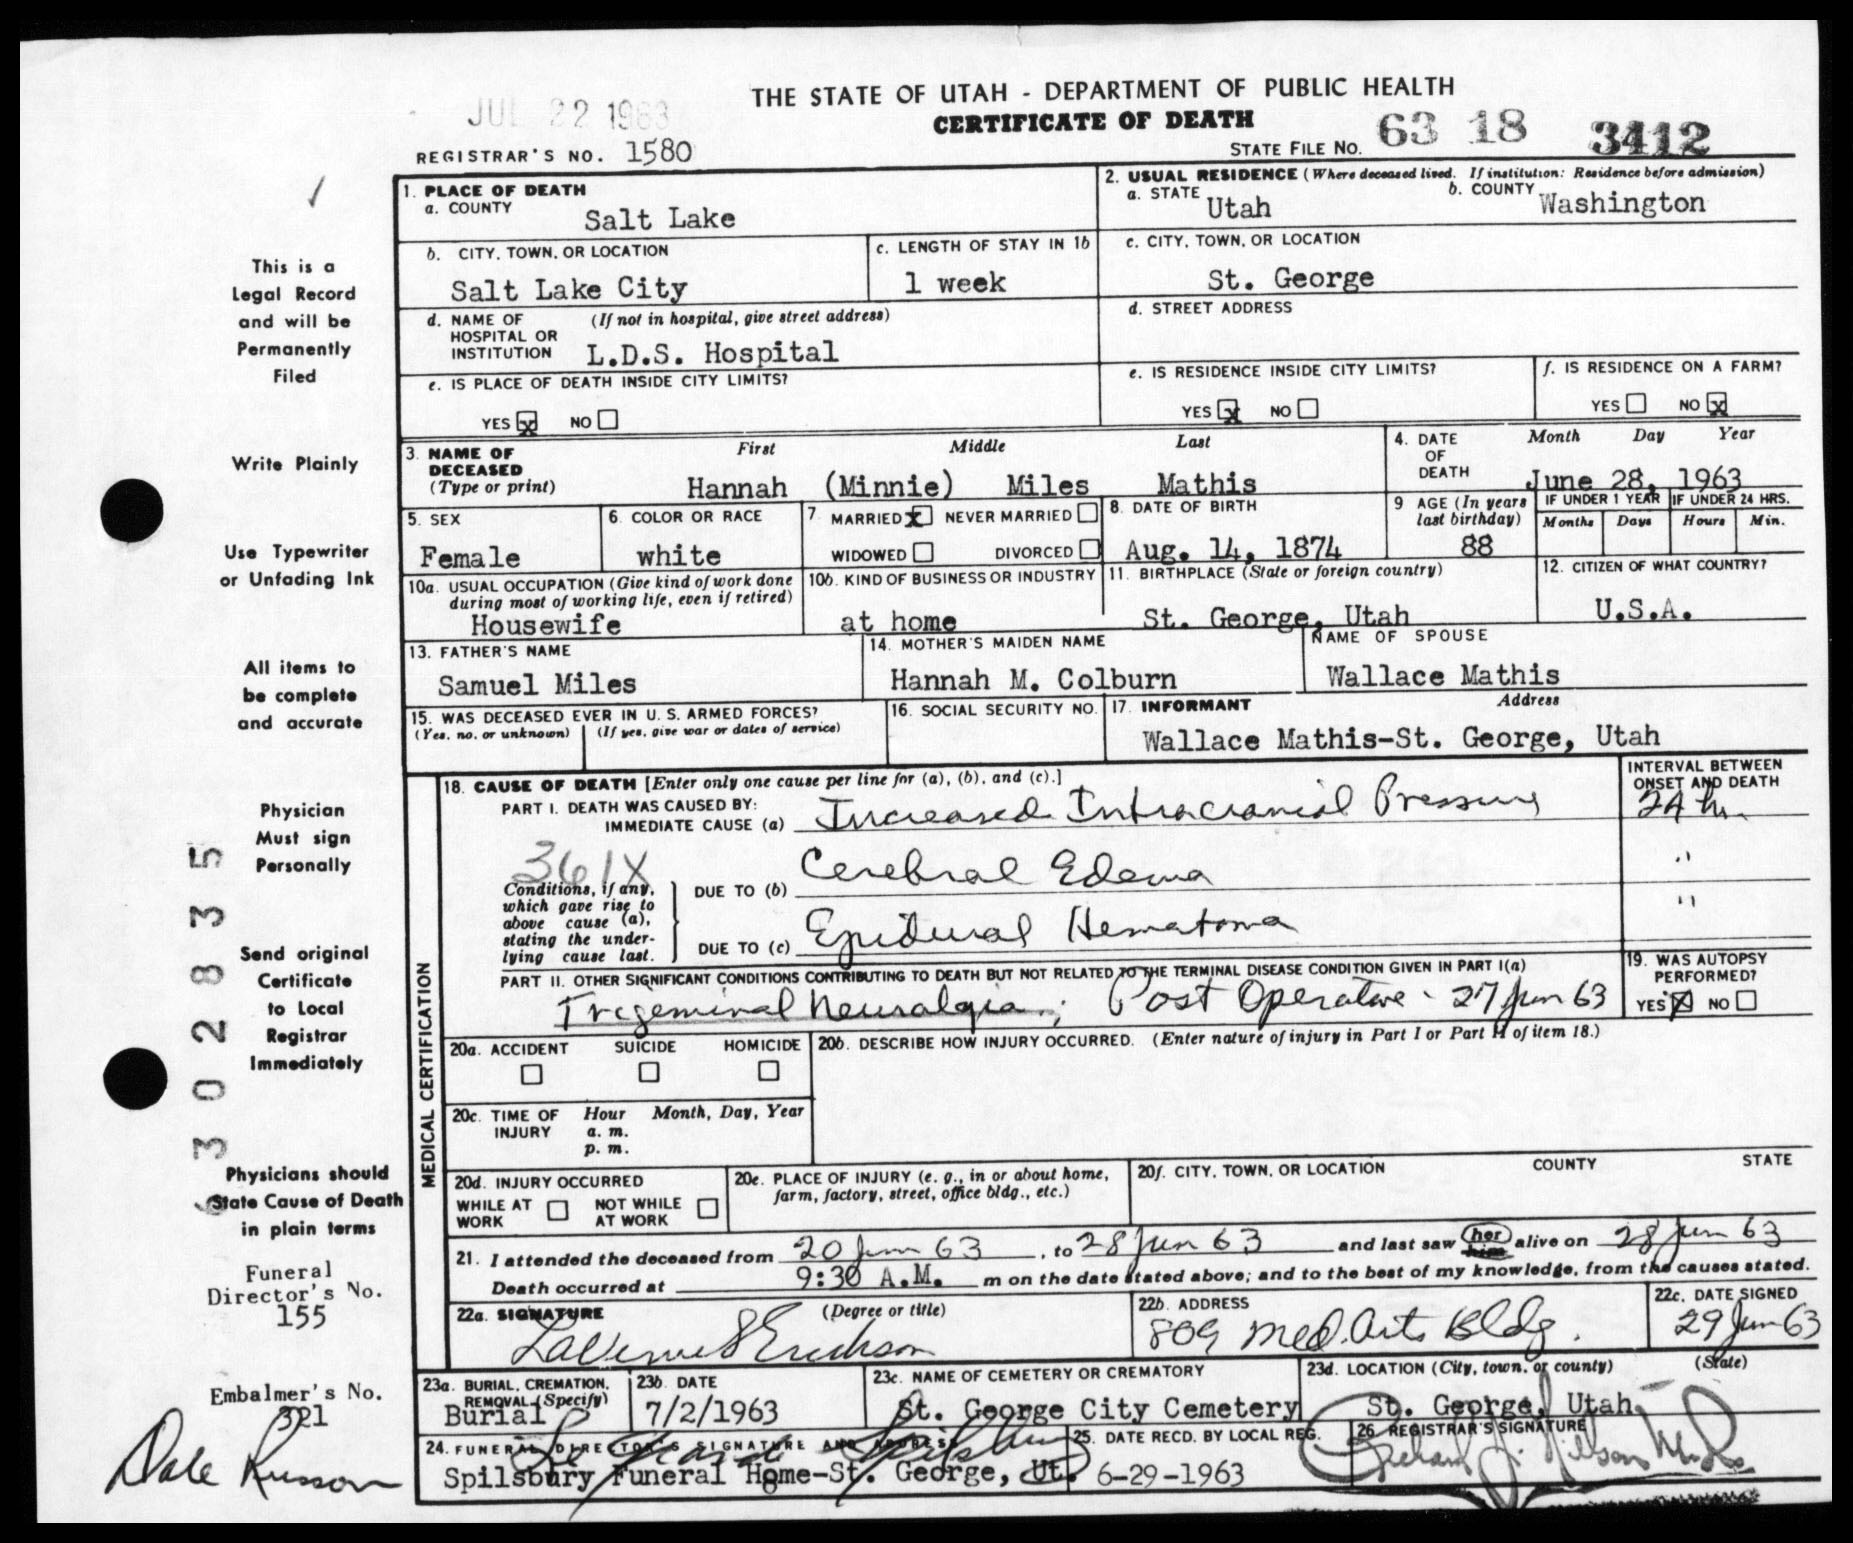 THE STATE OF UTAH - DEPARTMENT OF PUBLIC HEALTH
JUL 22 1963
CERTIFICATE OF DEATH
REGISTRAR'S NO. 1580
STATE FILE NO. 63 18 3412
1. PLACE OF DEATH
a. COUNTY Salt Lake
2. USUAL RESIDENCE (Where deceased lived. If institution: Residence before admission)
a. STATE Utah b. COUNTY Washington
b. CITY, TOWN, OR LOCATION Salt Lake City
c. LENGTH OF STAY IN 1b 1 week
c. CITY, TOWN, OR LOCATION St. George
d. NAME OF HOSPITAL OR INSTITUTION (If not in hospital, give street address) L.D.S. Hospital
d. STREET ADDRESS
e. IS PLACE OF DEATH INSIDE CITY LIMITS?
YES x NO
e. IS RESIDENCE INSIDE CITY LIMITS?
YES x NO
f. IS RESIDENCE ON A FARM?
YES NO x
3. NAME OF DECEASED (Type or print) First Middle Last
Hannah (Minnie) Miles Mathis
4. DATE OF DEATH Month Day Year
June 28, 1963
5. SEX Female
6. COLOR OR RACE white
7. MARRIED x NEVER MARRIED
WIDOWED DIVORCED
8. DATE OF BIRTH Aug. 14, 1874
9 AGE (In years last birthday) 88
IF UNDER 1 YEAR Months Days
IF UNDER 24 HRS. Hours Min.
10a. USUAL OCCUPATION (Give kind of work done during most of working life, even if retired) Housewife
10b. KIND OF BUSINESS OR INDUSTRY at home
11. BIRTHPLACE (State or foreign country) St. George, Utah
12. CITIZEN OF WHAT COUNTRY? U.S.A.
13. FATHER'S NAME Samuel Miles
14. MOTHER'S MAIDEN NAME Hannah M. Colburn
NAME OF SPOUSE Wallace Mathis
15. WAS DECEASED EVER IN U. S. ARMED FORCES?
(Yes, no, or unknown) (If yes, give war or dates of service)
16. SOCIAL SECURITY NO.
17. INFORMANT Address
Wallace Mathis-St. George, Utah
MEDICAL CERTIFICATION
18. CAUSE OF DEATH [Enter only one cause per line for (a), (b), and (c).]
INTERVAL BETWEEN ONSET AND DEATH
PART I. DEATH WAS CAUSED BY:
IMMEDIATE CAUSE (a) Increased Intracranial Pressure 24 hr.
361X
Conditions, if any, which gave rise to above cause (a), stating the underlying cause last.
DUE TO (b) Cerebral Edema "
DUE TO (c) Epidural Hematoma "
PART II. OTHER SIGNIFICANT CONDITIONS CONTRIBUTING TO DEATH BUT NOT RELATED TO THE TERMINAL DISEASE CONDITION GIVEN IN PART I(a)
Trigeminal Neuralgia; Post Operative - 27 Jun 63
19. WAS AUTOPSY PERFORMED?
YES X NO
20a. ACCIDENT SUICIDE HOMICIDE
20b. DESCRIBE HOW INJURY OCCURRED. (Enter nature of injury in Part I or Part II of item 18.)
20c. TIME OF INJURY Hour Month, Day, Year
a. m.
p. m.
20d. INJURY OCCURRED
WHILE AT WORK NOT WHILE AT WORK
20e. PLACE OF INJURY (e. g., in or about home, farm, factory, street, office bldg., etc.)
20f. CITY, TOWN, OR LOCATION COUNTY STATE
21. I attended the deceased from 20 Jun 63, to 28 Jun 63 and last saw her him alive on 28 Jun 63
Death occurred at 9:30 A.M. m on the date stated above; and to the best of my knowledge, from the causes stated.
22a. SIGNATURE (Degree or title)
LaVerne S Erickson
22b. ADDRESS 809 Med. Arts Bldg.
22c. DATE SIGNED 29 Jun 63
23a. BURIAL, CREMATION, REMOVAL (Specify) Burial
23b. DATE 7/2/1963
23c. NAME OF CEMETERY OR CREMATORY St. George City Cemetery
23d. LOCATION (City, town, or county) (State)
St. George, Utah
24. FUNERAL DIRECTOR'S SIGNATURE AND ADDRESS
Spilsbury Funeral Home-St. George, Ut.
25. DATE RECD. BY LOCAL REG. 6-29-1963
26. REGISTRAR'S SIGNATURE
This is a
Legal Record
and will be
Permanently
Filed
Write Plainly
Use Typewriter
or Unfading Ink
All items to
be complete
and accurate
Physician
Must sign
Personally
Send original
Certificate
to Local
Registrar
Immediately
Physicians should
State Cause of Death
in plain terms
Funeral
Director's No.
155
Embalmer's No.
321
Dale Russon